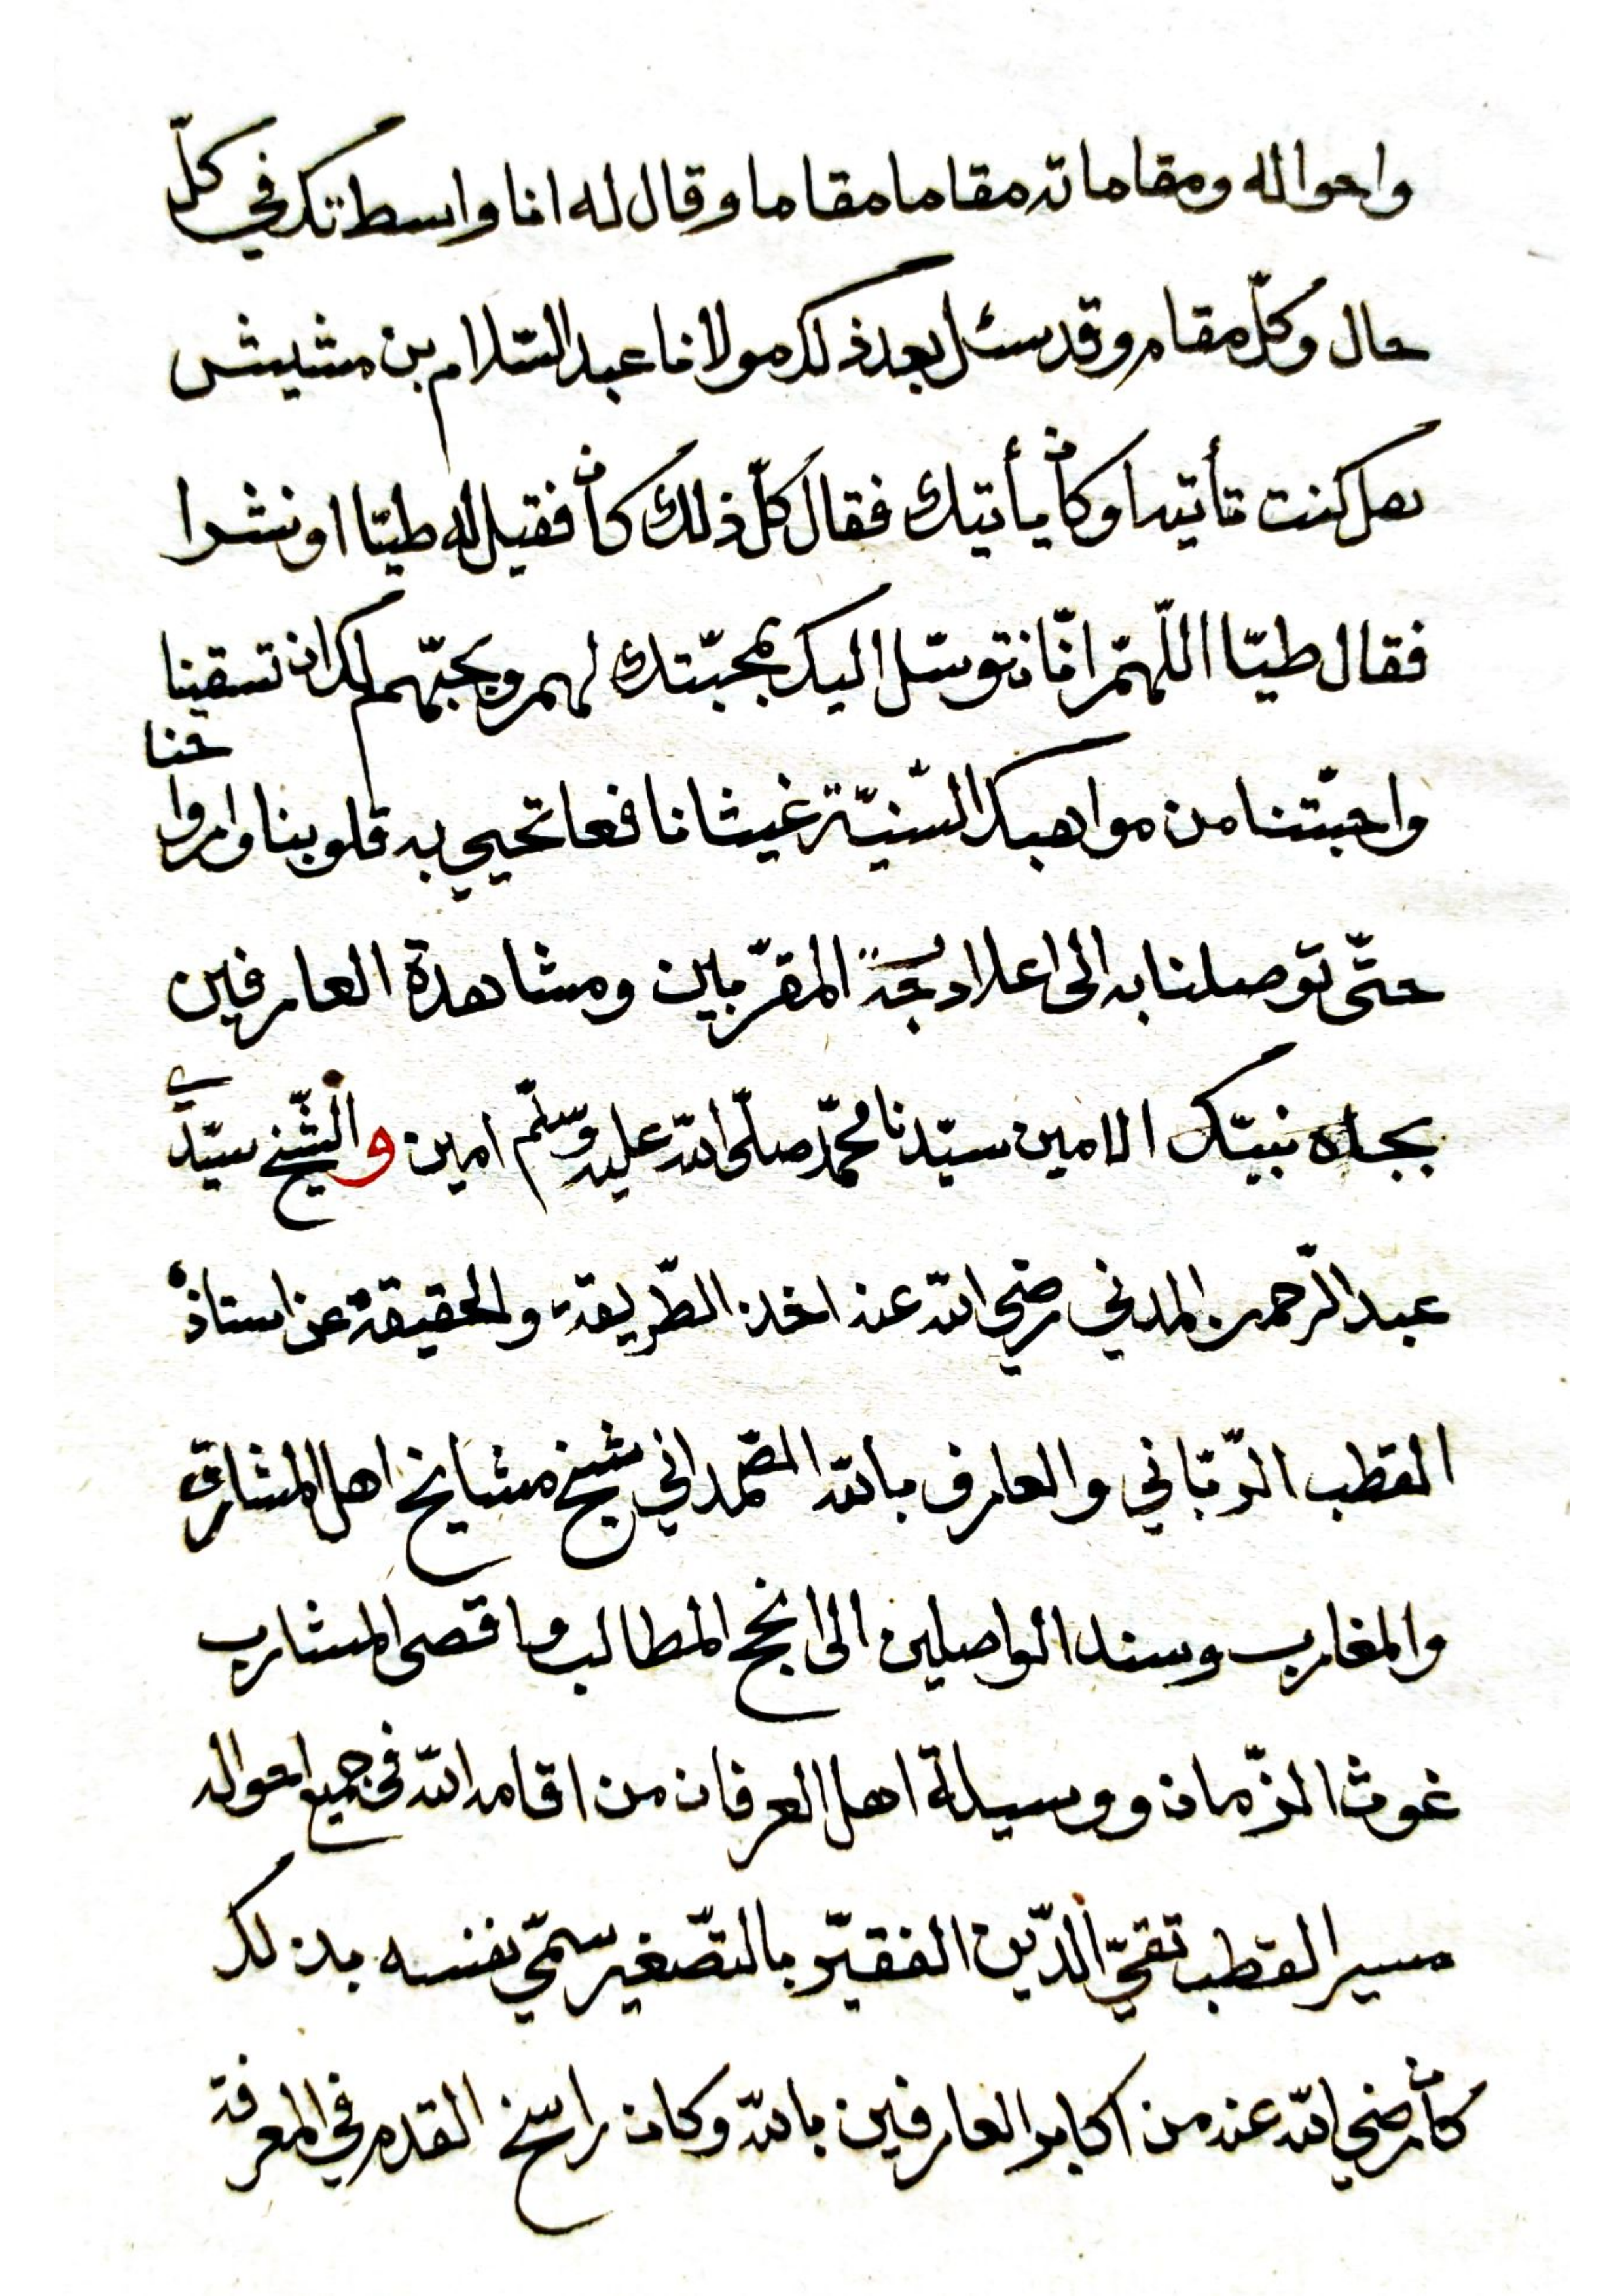 واحواله ومقاماته مقاما مقاما وقال له انا واسطتك في كلّ
حال وكلّ مقام وقد سئل بعد ذلك مولانا عبد السّلام بن مشيش
هل كنت تأتيه او كان يأتيك فقال كلّ ذلك كان فقيل له طيّا او نشرا
فقال طيّا اللّهمّ انّا نتوسّل اليك بمحبّتك لهم وبحبّهم لك ان تسقينا
واحبّتنا من مواهبك السّنيّة غيثا نافعا تحيي به قلوبنا وارواحنا
حتّى توصلنا به الى اعلا درجة المقرّبين ومشاهدة العارفين
بجاه نبيّك الامين سيّدنا محمّد صلّى الله عليه وسلّم امين والشّيخ سيّدي
عبد الرّحمن المدني رضي الله عنه اخذ الطّريقة والحقيقة عن استاذه
القطب الرّبّاني والعارف بالله الصّمداني شيخ مشايخ اهل المشارق
والمغارب وسند الواصلين الى انجح المطالب واقصى المشارب
غوث الزّمان ووسيلة اهل العرفان من اقامه الله في جميع احواله
مسير القطب تقيّ الدّين الفقيّر بالتّصغير سمّي نفسه بذلك
كان رضي الله عنه من اكابر العارفين بالله وكان راسخ القدم في المعرفة